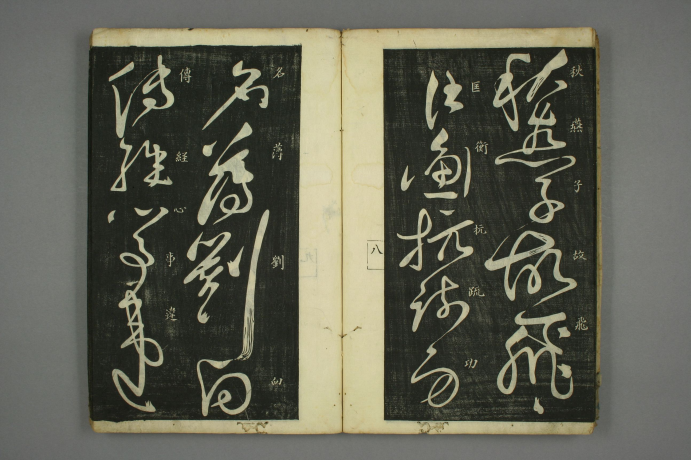 秋燕子故飛
匡衡抗疏功
八
名薄劉向
傳經心事違